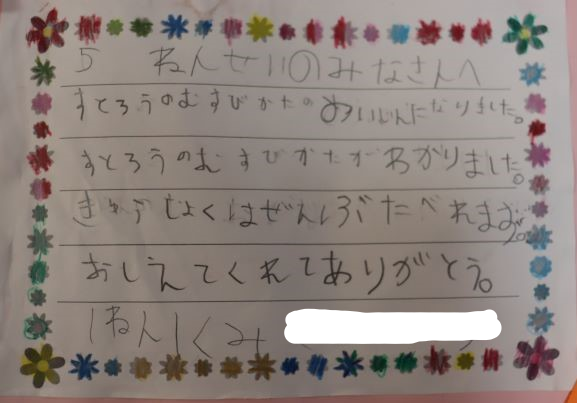 5 ねんせいのみなさんへ
すとろうのむすびかたの なりました。
すとろうのむすびかたがわかりました。
きゅうしょくはぜんぶたべれます。
おしえてくれてありがとう。
1ねん1くみ